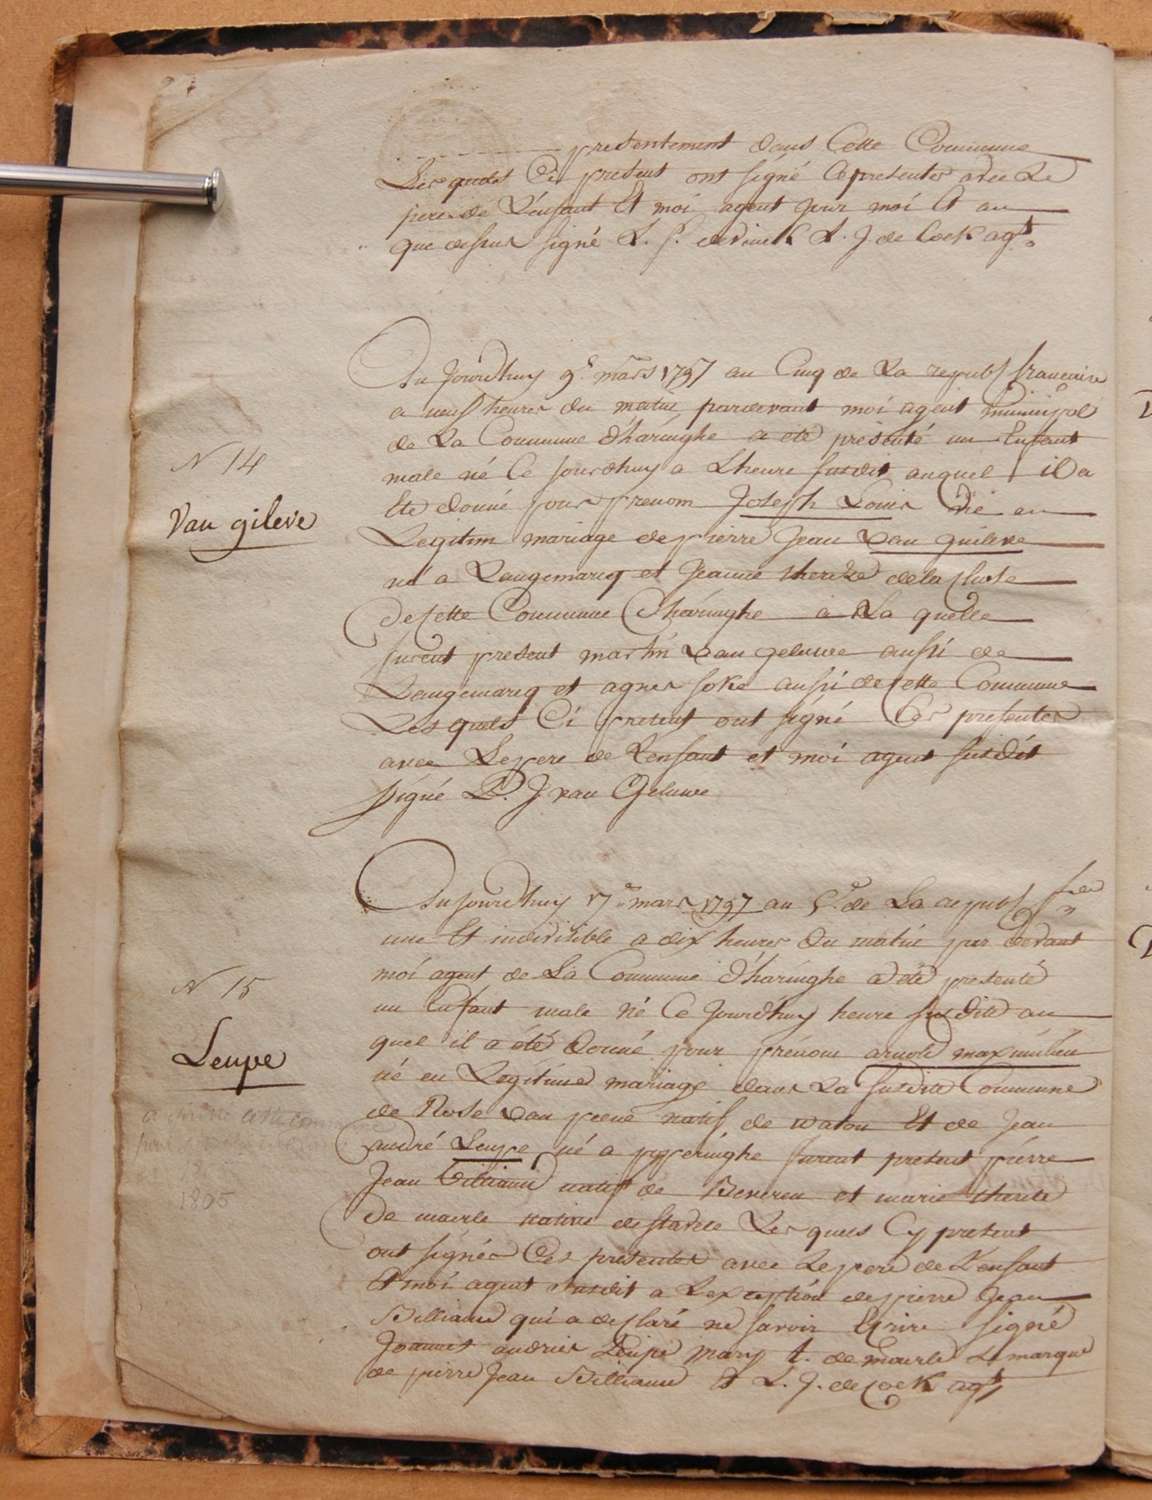 presentement dans Cette Commune
Lesquels Ci present ont signé Cepresentes avec Le
pere de L'enfant Et moi agent jour moi Et an
que dessus signé L. J. de Cock agt
Au Jourdhuy 9e mars 1797 au Cinq de La republ francaise
a neuf heures du matin, pardevant moi agent municipal
de La Commune d'haringhe a été présenté un Enfant
N 14
male né Ce Jourdhuy a Lheure susdit auquel il a
Van gileve
Ete donné pour prenom Joseph Louis Né en
Legitim mariage de pierre Jean Van guileve
né a Langemarcq et Jeanne therese de la
de Cette Commune d'haringhe a La quelle
furent present martin Van geluwe aussi de
Langemarcq et agnes soke aussi de Cette Commune
Les quels Ci present ont signé Ces presentes
avec Lepere de Lenfant et moi agent susdit
signé P. J van Geluwe
Au Jourdhuy 17e mars 1797 au 5e de La republ fse
une Et indivisible a dix heures du matin par devant
N 15
moi agent de La Commune d'haringhe a été presenté
un Enfant male né Ce Jourdhuy heure susdite au
Leupe
quel il a été donné pour prénom arnold maximilien
né en Legitime mariage dans La susdite Commune
de Rose Van peene natif de watou Et de Jean
andré Leupe né a poperinghe furent present pierre
Jean Billiauw natif de Beveren et marie therese
1805
de maerle native de stavele Les quels Cy present
ont signés Ces presentes avec Lepere de L'enfant
Et moi agent susdit a Lexception de pierre Jean
Billiauw qui a declaré ne savoir Ecrire signé
Joannes andries Leupe Mary t. de Maerle Lemarque
de pierre Jean Billiauw Et L. J. de Cock agt